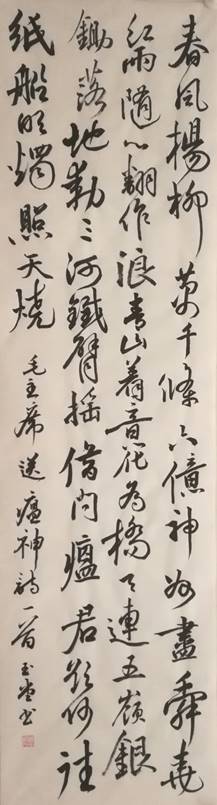 春風楊柳萬千條六億神州盡舜堯
紅雨隨心翻作浪青山着意化為橋天連五嶺銀
鋤落地動三河鐵臂摇借問瘟君欲何往
紙船明燭照天燒 毛主席送瘟神詩一首 书